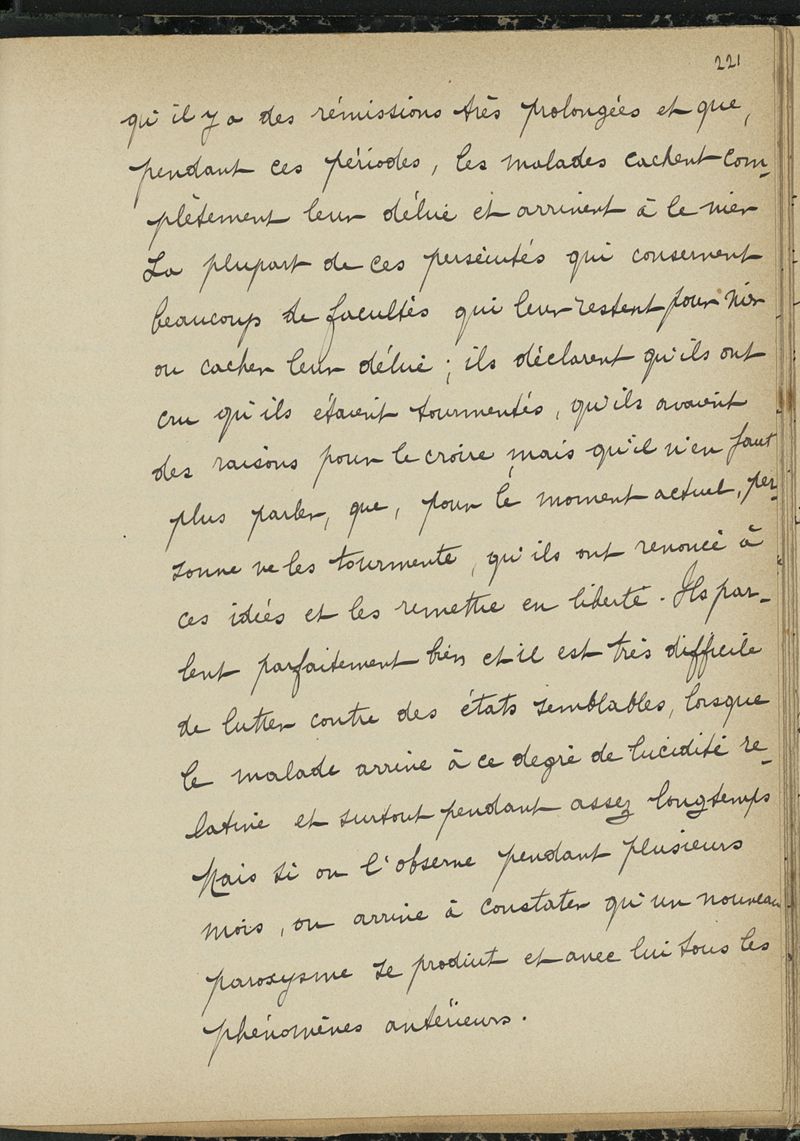 221
qu'il y a des rémissions très prolongées et que,
pendant ces périodes, les malades cachent com-
plètement leur délire et arrivent à le nier
La plupart de ces persécutés qui conservent
beaucoup de facultés qui leur restent pour nier
ou cacher leur délire ; ils déclarent qu'ils ont
cru qu'ils étaient tourmentés, qu'ils avaient
des raisons pour le croire, mais qu'il n'en faut
plus parler, que, pour le moment actuel, per-
sonne ne les tourmente, qu'ils ont renoncé à
ces idées et les remettre en liberté. Ils par-
lent parfaitement bien et il est très difficile
de lutter contre des états semblables, lorsque
le malade arrive à ce degré de lucidité re-
lative et surtout pendant assez longtemps
Mais si on l'observe pendant plusieurs
mois, on arrive à constater qu'un nouveau
paroxysme se produit et avec lui tous les
phénomènes antérieurs.